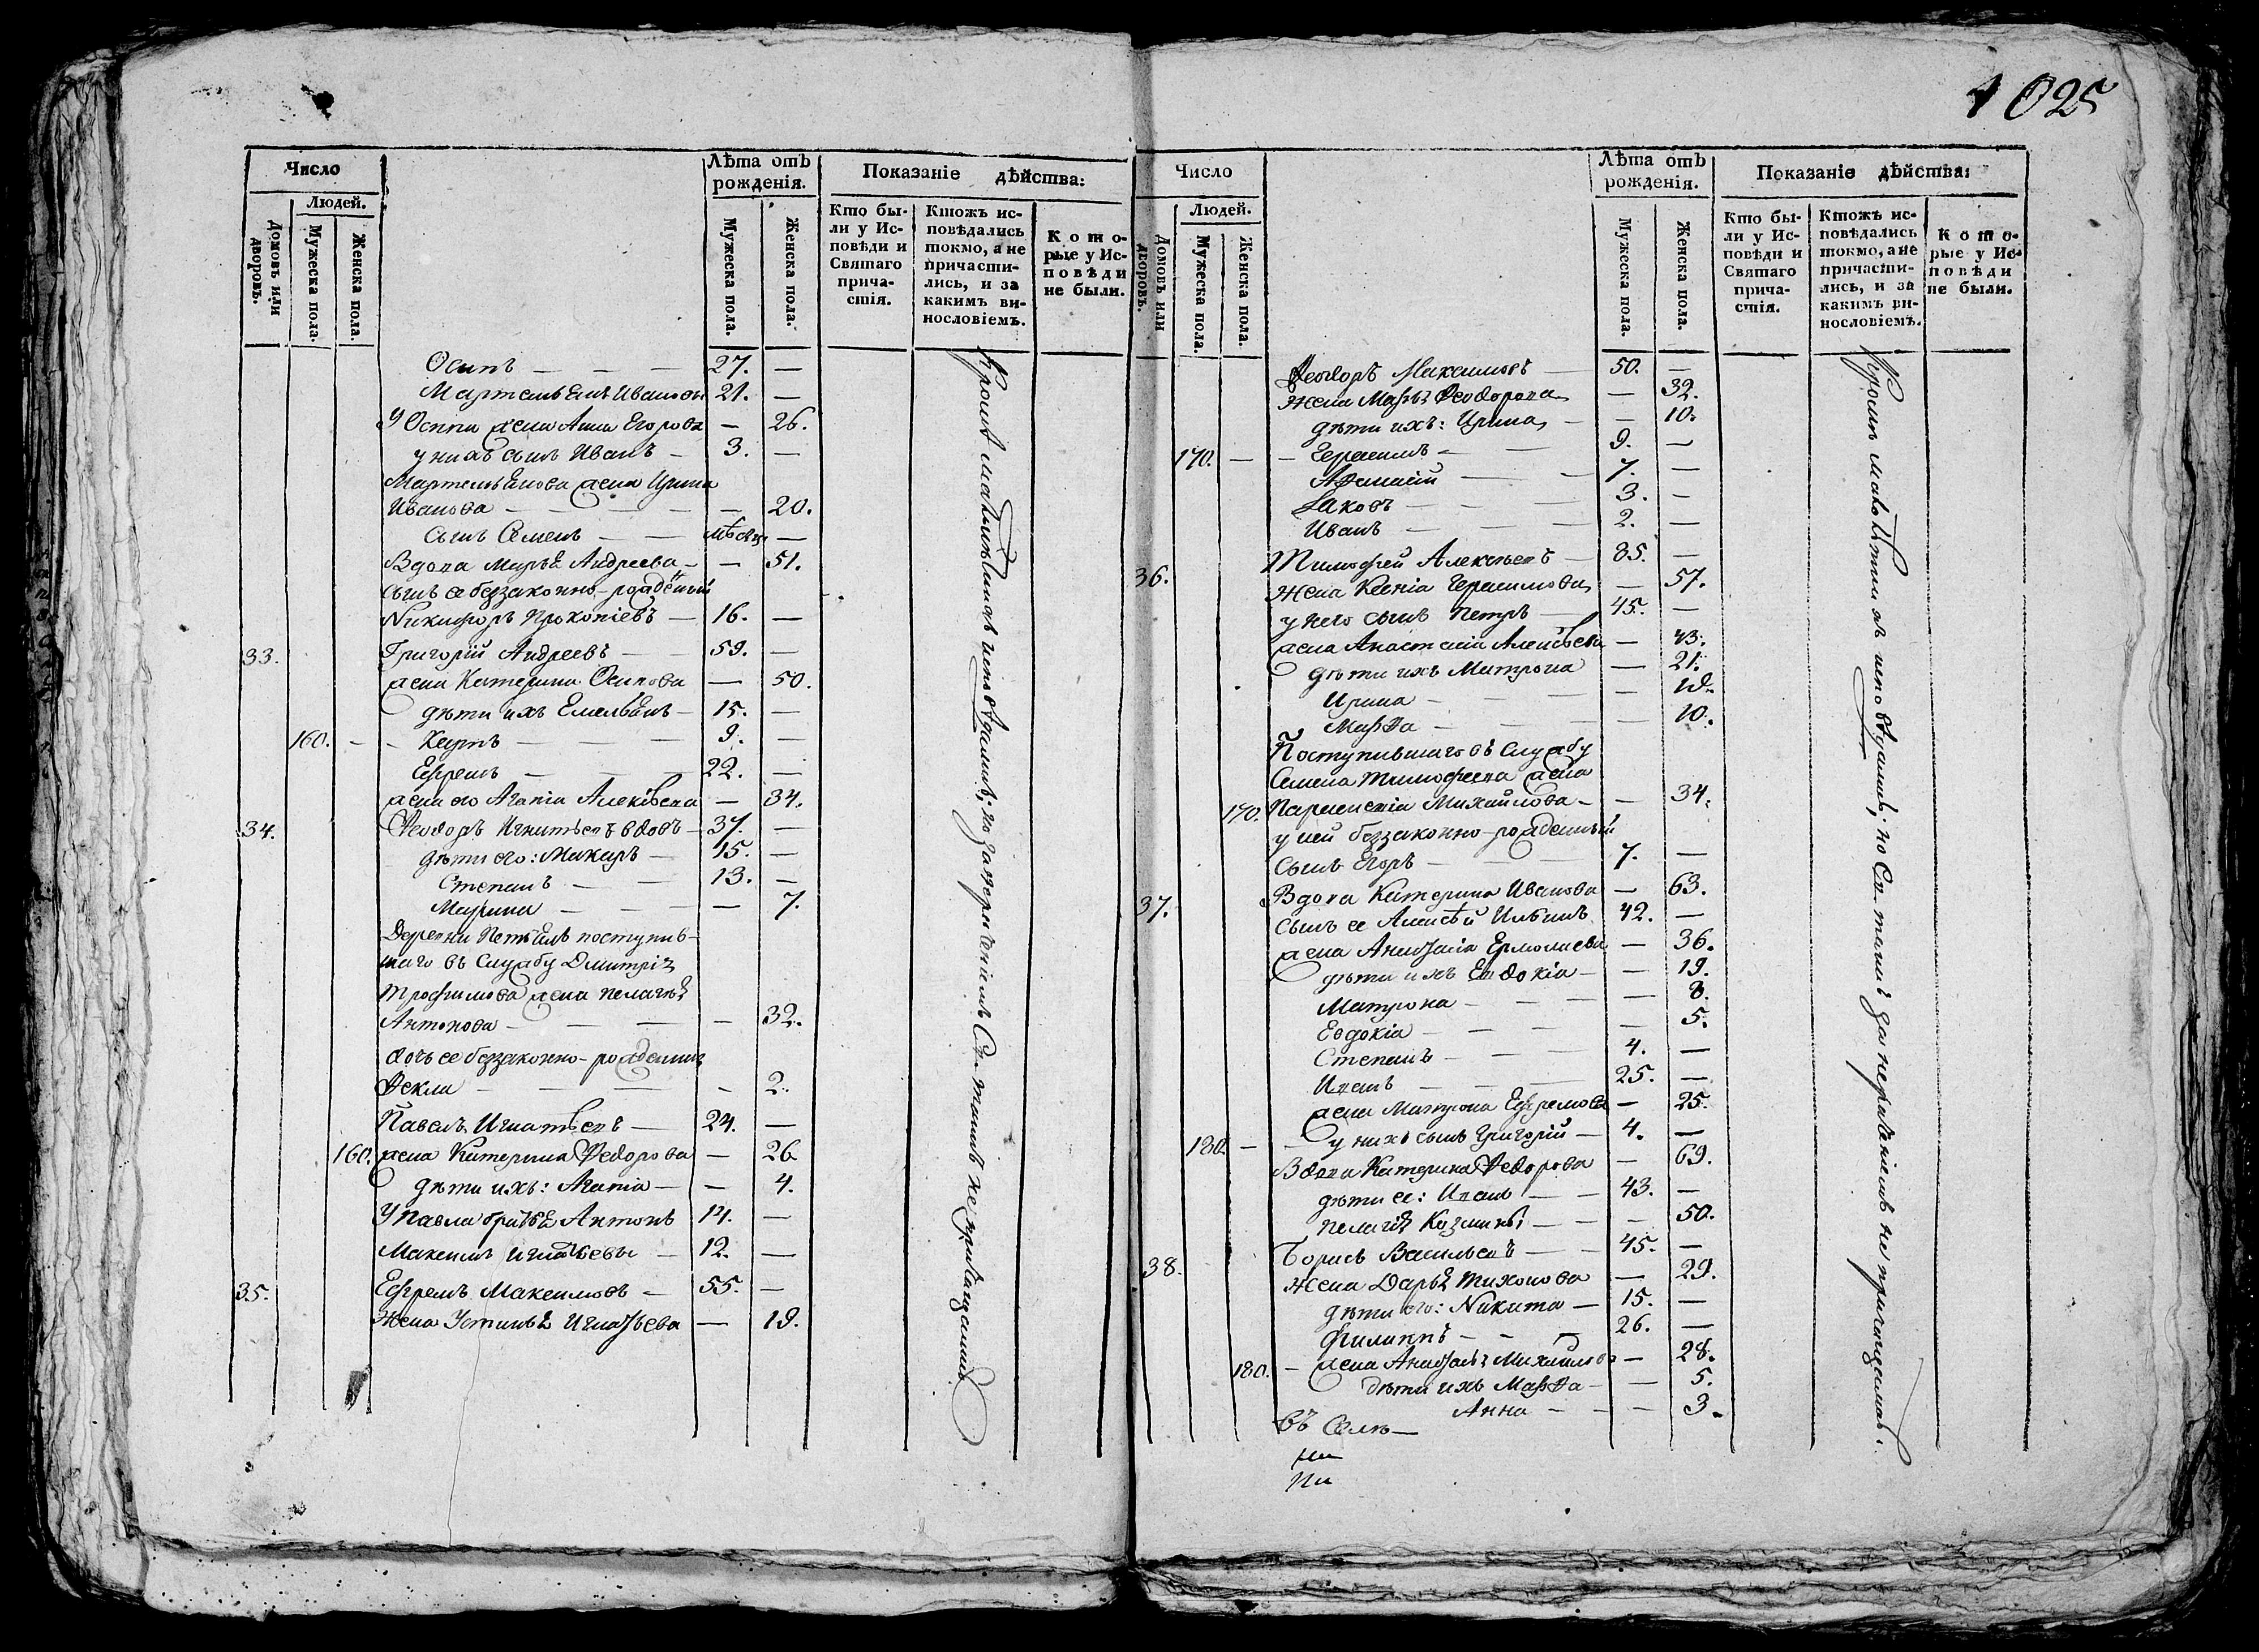 1025
Число
Людей.
Домовъ или дворовъ.
Мужеска пола.
Женска пола.
Лѣта отъ рожденія.
Мужеска пола.
Женска пола.
Показаніе дѣйства:
Кто бы-
ли у Ис-
повѣди и
Святаго
прича-
стія.
Ктожъ ис-
повѣдались
токмо, а не
причасти-
лись, и за
какимъ ви-
нословіемъ.
Кото-
рые у Ис-
повѣди
не были.
Осипъ — — — 27. —
Мартемьянъ Ивановы 21. —
У Осипа жена Анна Егорова — 26.
у нихъ сынъ Иванъ — 3. —
Мартемьянова жена Ирина
Иванова — — — — 20.
Сынъ Семенъ — — мѣсяц —
Вдова Марья Андреева — — 51.
сынъ ее беззаконно-рожденый
Никифоръ Прокопіевъ — 16. —
33. Григорій Андреевъ — — 59. —
жена Катерина Осипова — 50.
дѣти ихъ Емельянъ — 15. —
160. — — Карпъ — — — 9. —
Ефремъ — — — 22. —
жена его Агапія Алексѣева — 34.
34. Ѳеодоръ Игнатьевъ вдовъ — 37. —
дѣти его: Макаръ — 15. —
Степанъ — — 13. —
Марина — — — — 7.
Деревни поступив-
шаго въ службу Дмитрія
Трофимова жена Пелагія
Антонова — — — — 32.
дочь ее беззаконно-рожденная
Ѳекла — — — — 2.
Павелъ Игнатьевъ — 24. —
160. жена Катерина Ѳедорова — 26
дѣти ихъ: Агапія — — 4.
У Павла братья Антонъ 14. —
Максимъ Игнатьевы — 12. —
35. Ефремъ Максимовъ — 55. —
Жена Устинья Игнатьева — 19.
Кромѣ исповѣдались; но за Св. таинъ не
Число
Людей.
Домовъ или дворовъ.
Мужеска пола.
Женска пола.
Лѣта отъ рожденія.
Мужеска пола.
Женска пола.
Показаніе дѣйства:
Кто бы-
ли у Ис-
повѣди и
Святаго
прича-
стія.
Ктожъ ис-
повѣдались
токмо, а не
причасти-
лись, и за
какимъ ви-
нословіемъ.
Кото-
рые у Ис-
повѣди
не были.
Ѳеодоръ Максимовъ — 50. —
Жена Марья Ѳеодорова — 32.
дѣти ихъ: Ирина — — 10.
170. — — Герасимъ — — 9. —
Афанасій — — 7. —
Іаковъ — — — 3. —
Иванъ — — — 2. —
36. Тимофей Алексѣевъ — 85. —
Жена Ксенія Герасимова — 57.
у него сынъ Петръ — 45. —
жена Анастасія Алексѣева — 43.
дѣти ихъ Матрона — 21.
Ирина — — —
Марѳа — — — 10.
Поступившаго въ службу
Семена Тимофеева жена
170. Михайлова — — 34.
у ней беззаконно-рожденный
сынъ Егоръ — — 7. —
37. Вдова Катерина Иванова — 63.
сынъ ее Алексѣй Ильинъ 42. —
жена Анастасія Ермолаева — 36.
дѣти ихъ Евдокія — — 19.
Матрона — — — 8.
Евдокія — — — — 5.
Степанъ — — — 4. —
Иванъ — — — 25. —
жена Матрона Ефремова — 25.
180. — — у нихъ сынъ Григорій — 4. —
Вдова Катерина Ѳедорова — 69.
дѣти ее: Иванъ — — 43. —
Пелагія Козмины — — 50.
38. Борисъ Васильевъ — — 45. —
Жена Дарья Тихонова — 29.
дѣти его: Никита — 15. —
Филиппъ — — — 26. —
180. — жена Михайлова — 28.
дѣти ихъ Марѳа — — 5.
Анна — — — 3.
въ Селѣ —
Кромѣ исповѣдались; но Св. таинъ за не